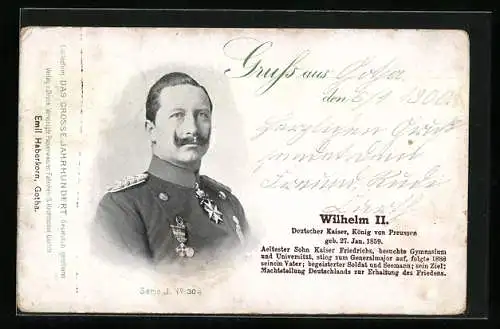 Gruss aus Gotha
den 8/1 1900.
Herzlichen Gruß
sendet dein
Freund, Rudi
Wilhelm II.
Deutscher Kaiser, König von Preussen
geb. 27. Jan. 1859.
Aeltester Sohn Kaiser Friedrichs, besuchte Gymnasium
und Universität, stieg zum Generalmajor auf, folgte 1888
seinem Vater; begeisterter Soldat und Seemann; sein Ziel:
Machtstellung Deutschlands zur Erhaltung des Friedens.
Serie I. No 30
DAS GROSSE JAHRHUNDERT
Emil Haberkorn, Gotha.